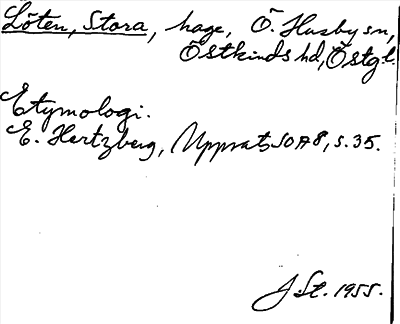 Löten, Stora, hage, Ö. Husby sn,
Östkinds hd, Östgl.
Etymologi.
E. Hertzberg, Uppsats SOA 8, s. 35.
J. St. 1955.